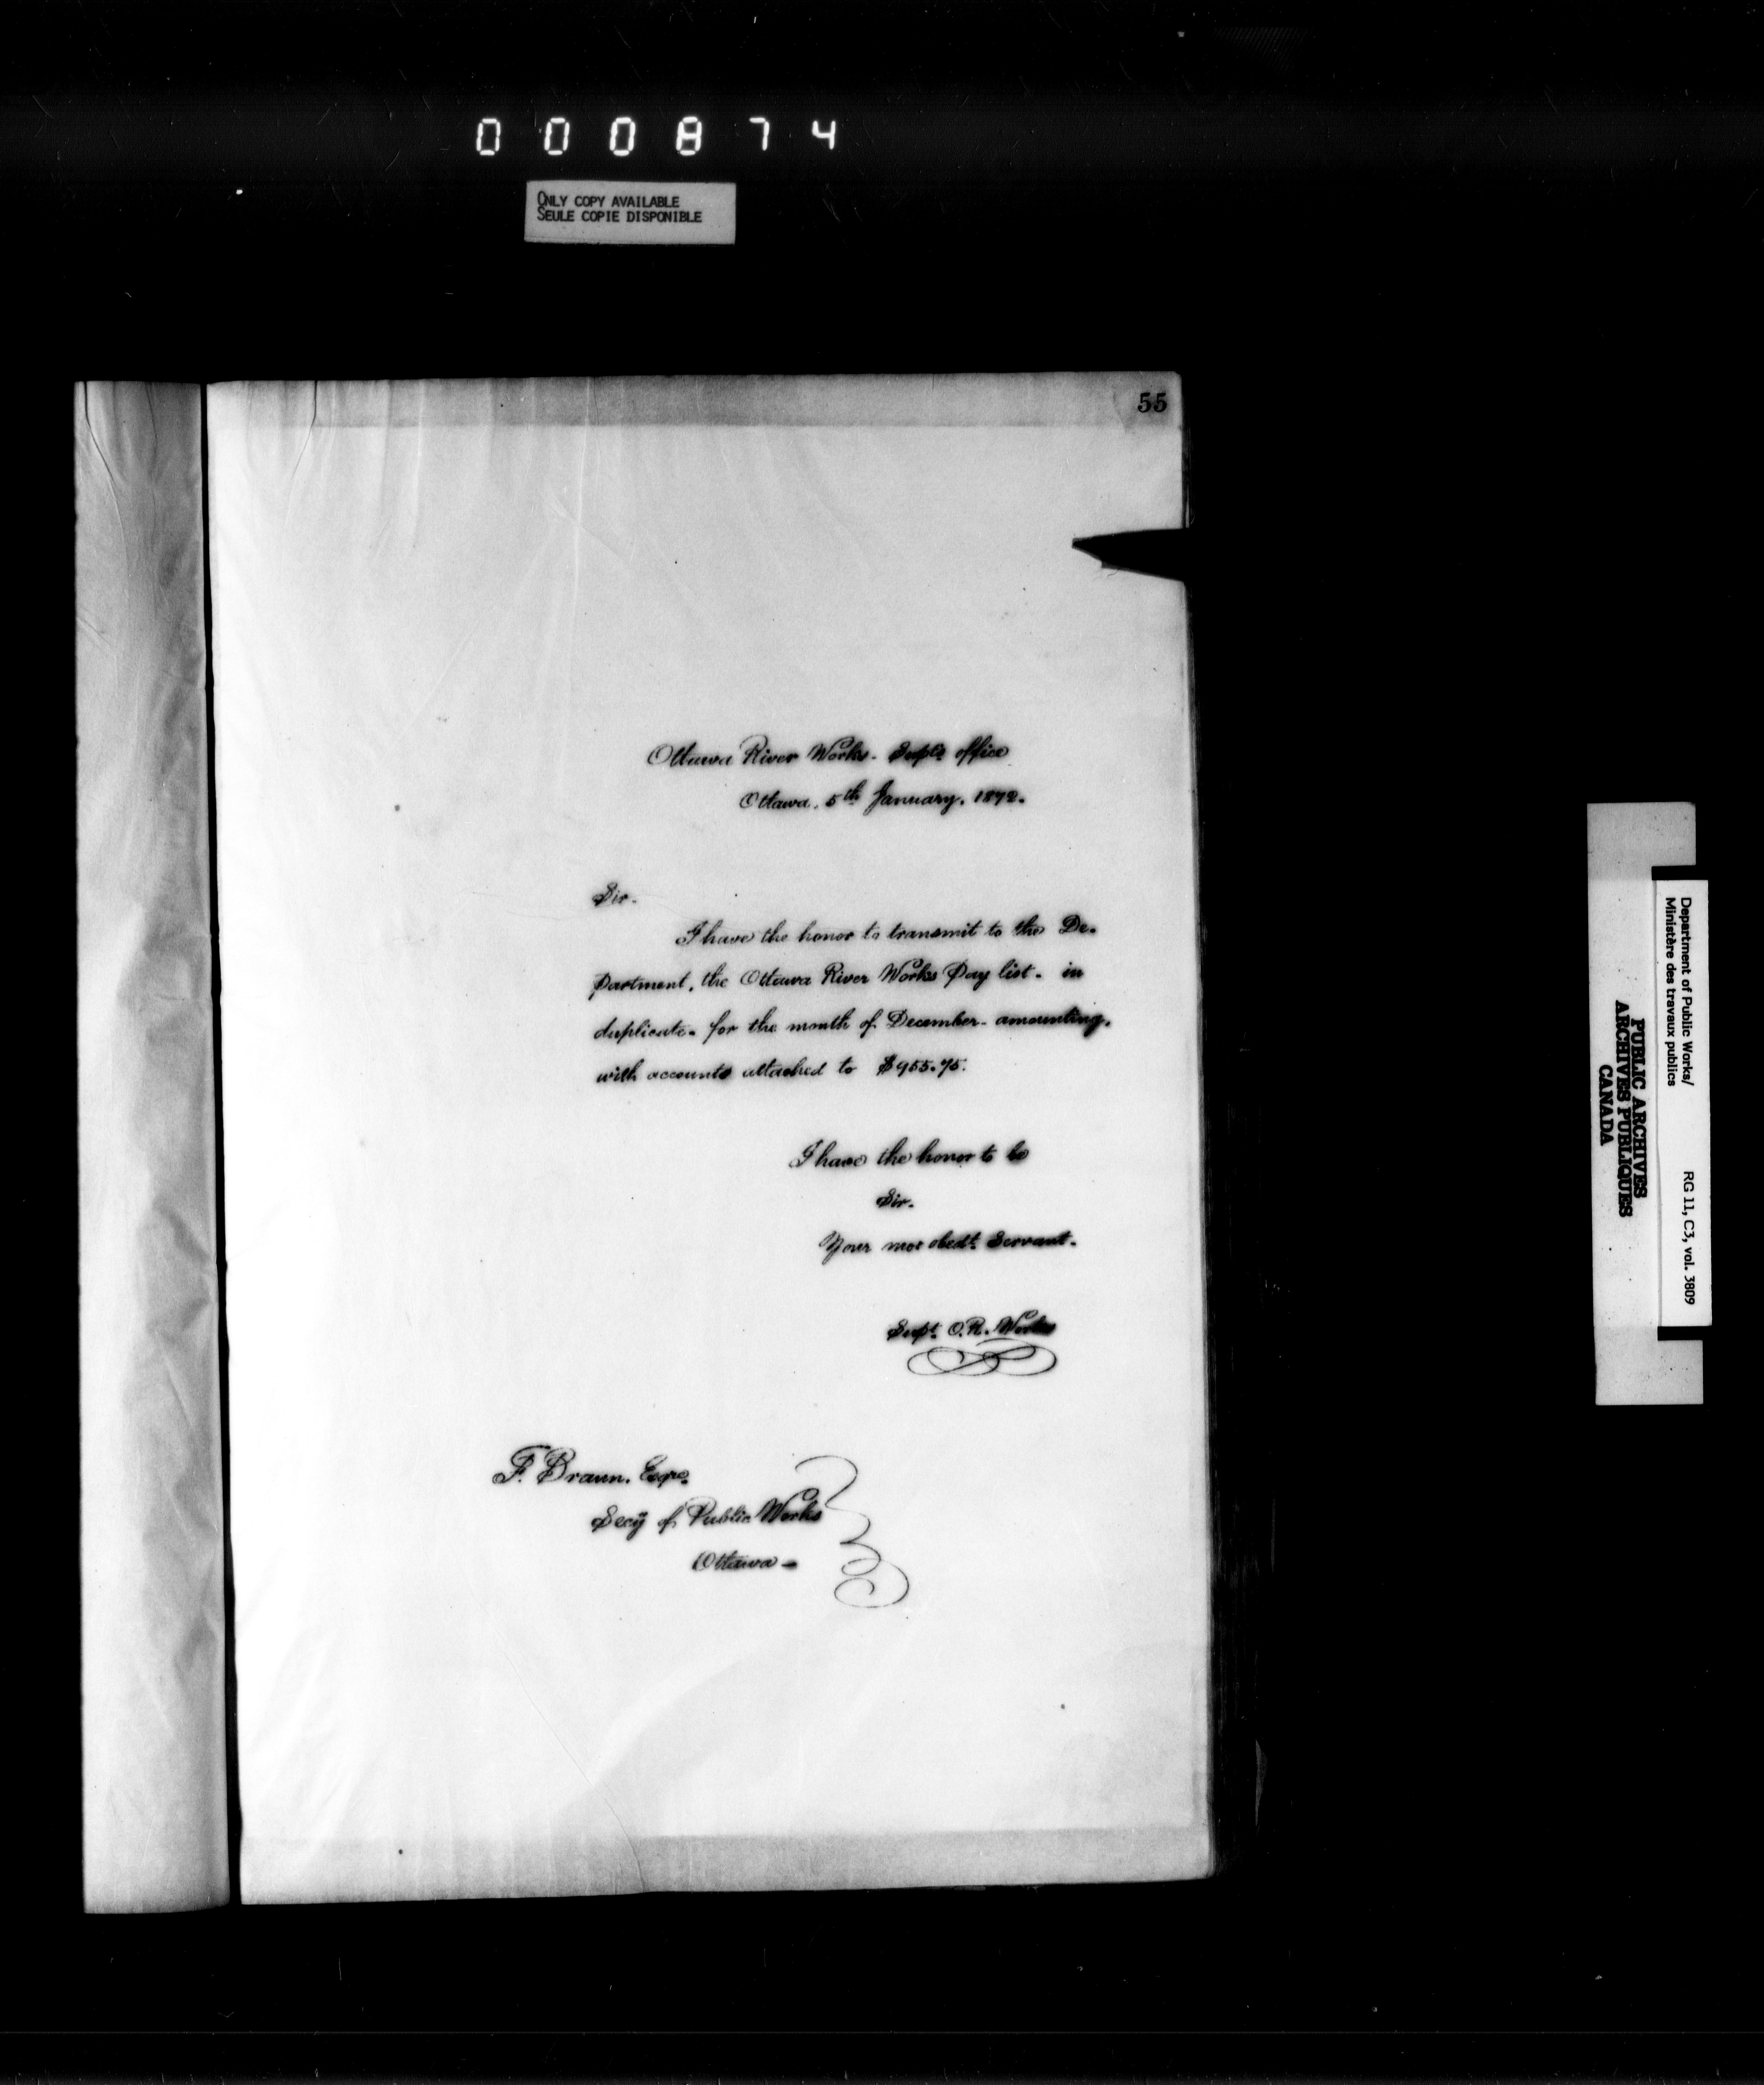 000874
ONLY COPY AVAILABLE
SEULE COPIE DISPONIBLE
55
Ottawa River Works. Supts office
Ottawa. 5th January. 1872.
Sir.
I have the honor to transmit to the De-
partment, the Ottawa River Works Pay list. in
duplicate. for the month of December. amounting,
with accounts attached to $955.75.
I have the honor to be
Sir.
Your mo: obedt. Servant.
Supt. O. R. Works
F. Braun. Esqre.
Secy of Public Works
Ottawa -
Department of Public Works/
Ministère des travaux publics
RG 11, C3, vol. 3809
PUBLIC ARCHIVES
ARCHIVES PUBLIQUES
CANADA